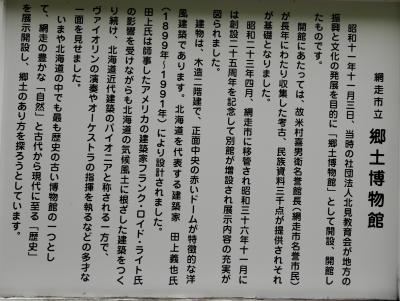 網走市立
郷土博物館
昭和十一年十一月三日、当時の社団法人北見教育会が地方の
振興と文化の発展を目的に「郷土博物館」として開設、開館し
たものです。
開館にあたっては、故米村喜男衛名誉館長(網走市名誉市民)
が長年にわたり収集した考古、民族資料三千点が提供されそれ
が基礎となりました。
昭和二十三年四月、網走市に移管され昭和三十六年十一月に
は創設二十五周年を記念して別館が増設され展示内容の充実が
図られました。
建物は、木造二階建で、正面中央の赤いドームが特徴的な洋
風建築であります。北海道を代表する建築家 田上義也氏
(1899年/1991年)により設計されました。
田上氏は師事したアメリカの建築家フランク・ロイド・ライト氏
の影響を受けながらも北海道の気候風土に根ざした建築をつく
り続け、北海道近代建築のパイオニアと称される一方で、
ヴァイオリンの演奏やオーケストラの指揮を執るなどの多才な
一面を見せました。
いまや北海道の中でも最も歴史の古い博物館の一つとし
て、網走の豊かな「自然」と古代から現代に至る「歴史」
を展示開設し、郷土のあり方を探ろうとしています。